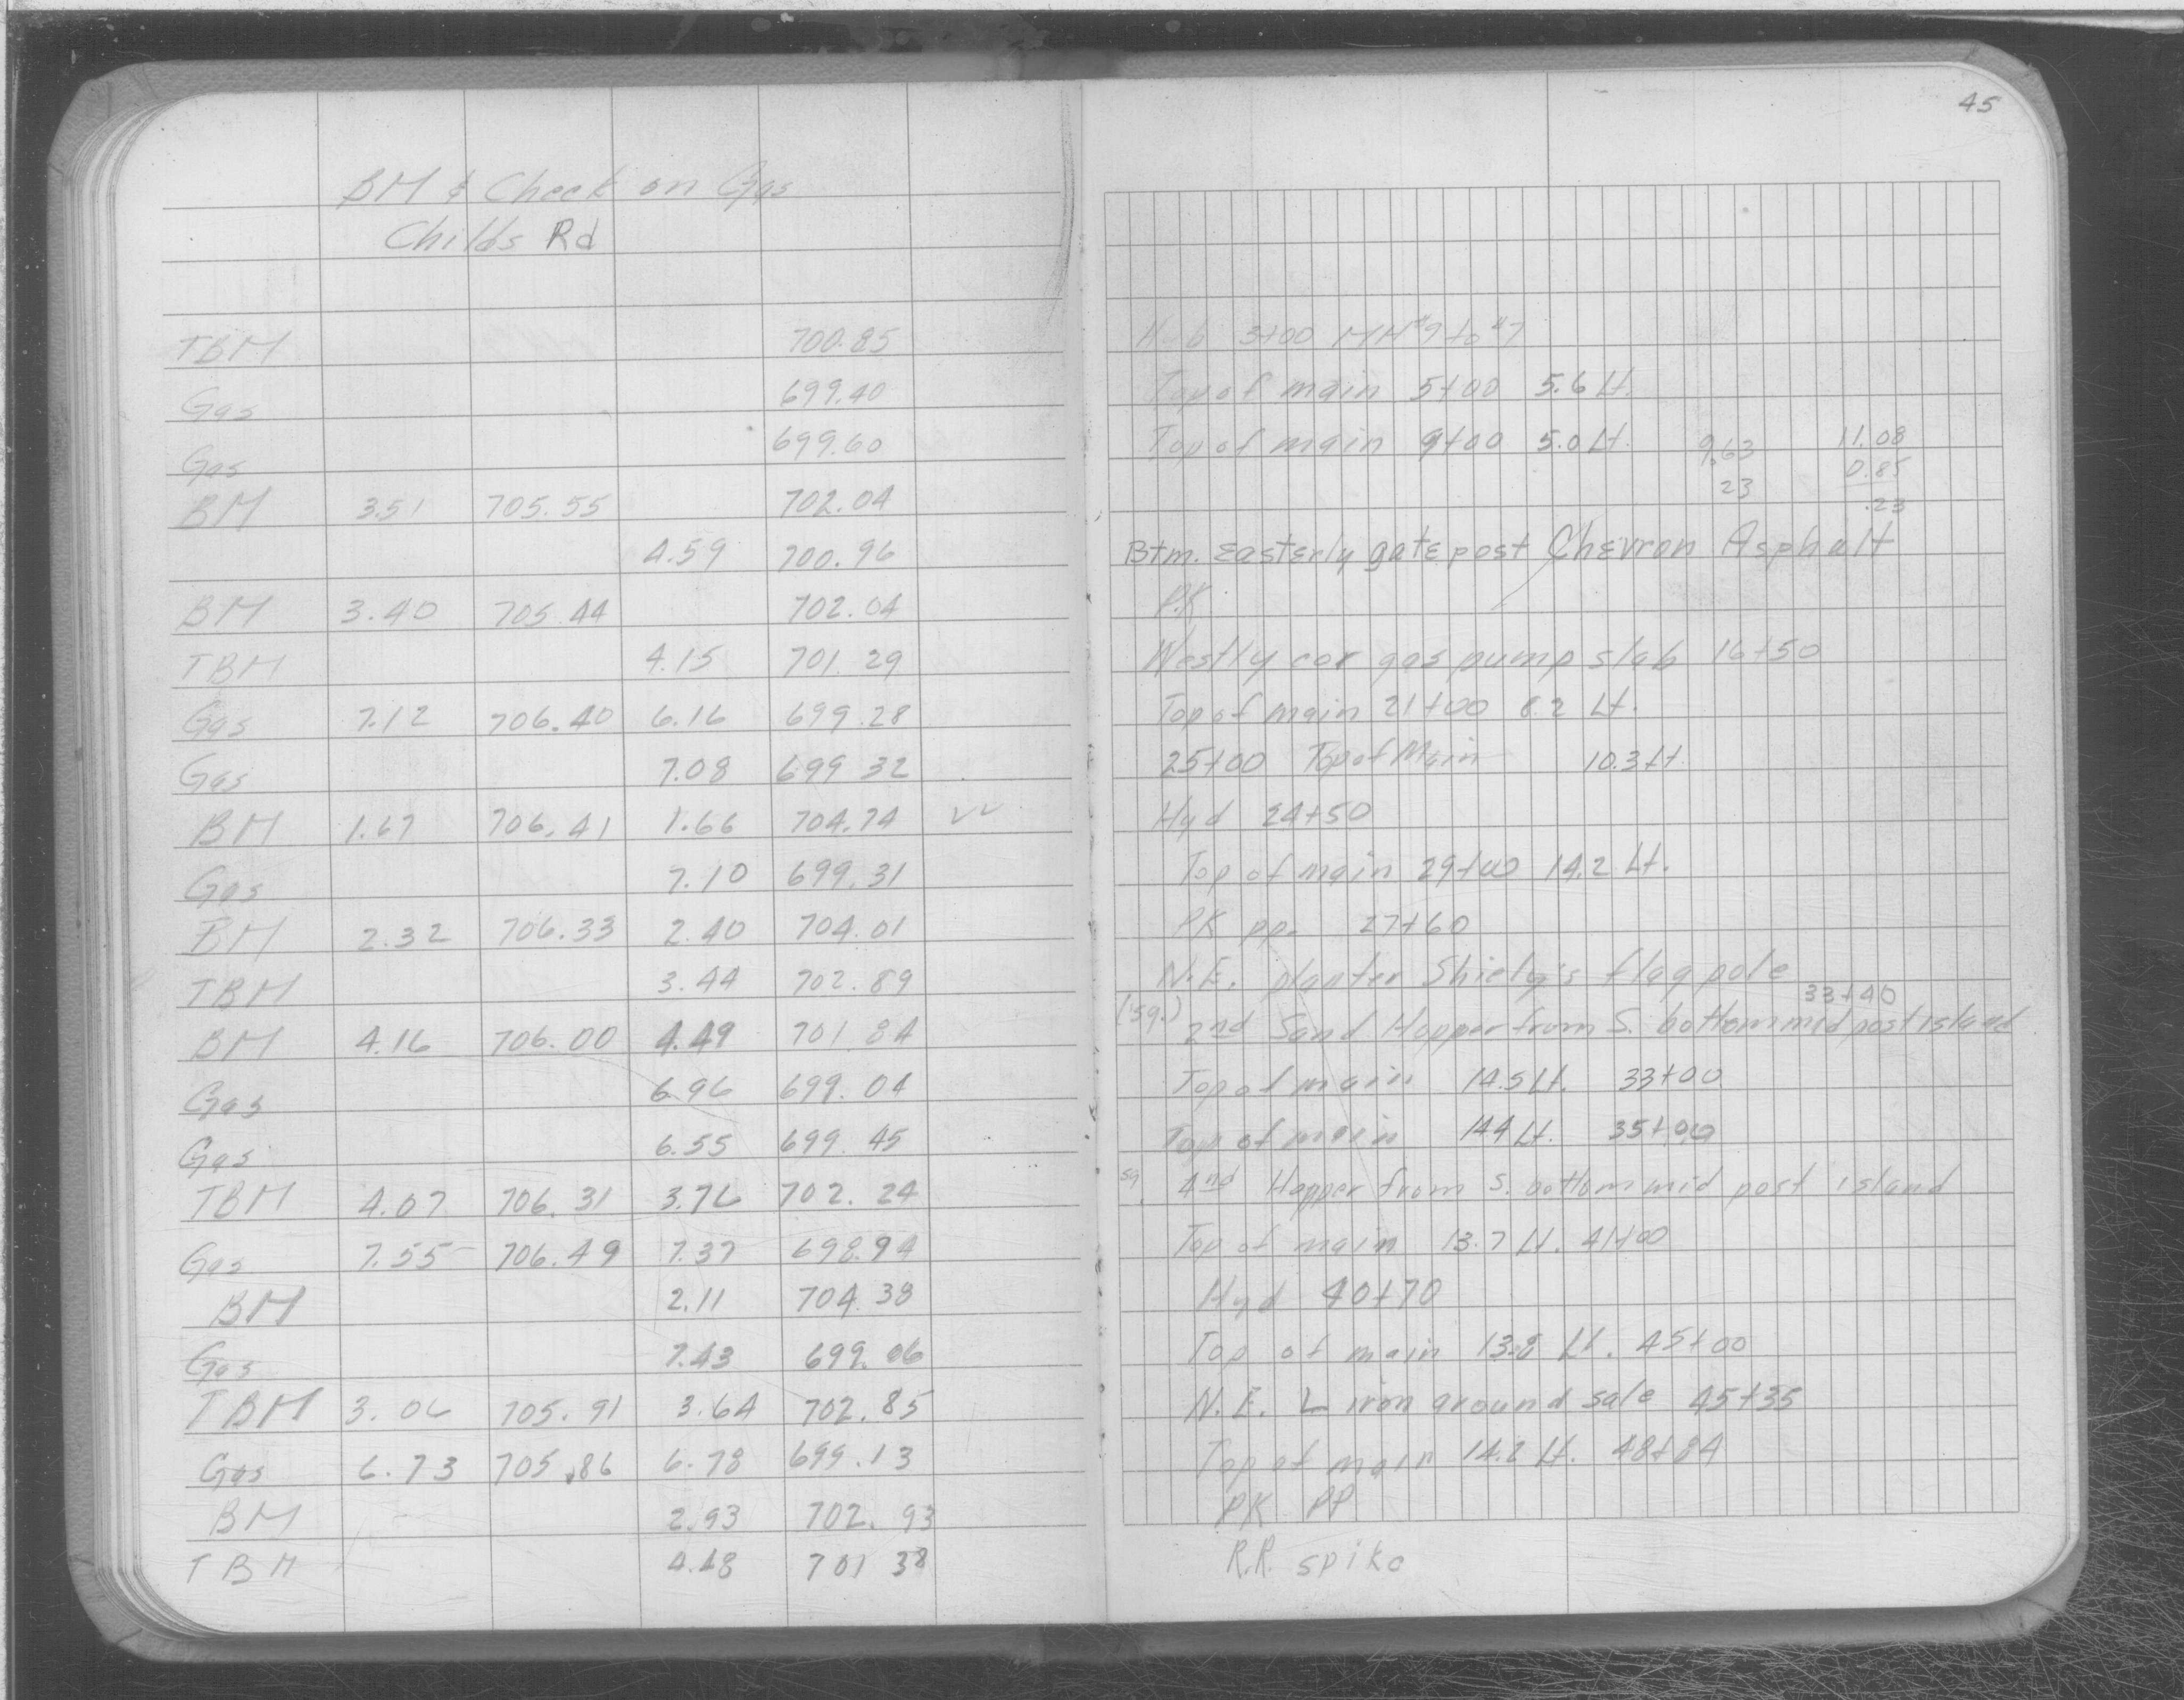 45
BM & Check on Gas
Childs Rd
TBM 700.85 Hub 3+00 MH #9 to #7
Gas 699.40 Top of main 5+00 5.6 Lt.
Gas 699.60 Top of main 9+00 5.0 Lt. 9.63 11.08
0.85
23 .23
BM 3.51 705.55 702.04 Btm. Easterly gate post Chevron Asphalt
4.59 700.96 P.K.
BM 3.40 705.44 702.04
TBM 4.15 701.29 Westly cor gas pump slab 16+50
Gas 7.12 706.40 6.16 699.28 Top of main 21+00 8.2 Lt.
Gas 7.08 699.32 25+00 Top of Main 10.3 Lt.
BM 1.67 706.41 1.66 704.74 Hyd 24+50
Gas 7.10 699.31 Top of main 29+00 14.2 Lt.
BM 2.32 706.33 2.40 704.01 PK pp. 27+60
TBM 3.44 702.89 N.E. planter Shiely's flag pole
33+40
BM 4.16 706.00 4.49 701.84 (sq.) 2nd Sand Hopper from S. bottom mid post island
Gas 6.96 699.04 Top of main 14.5 Lt. 33+00
Gas 6.55 699.45 Top of main 14.4 Lt. 35+00
TBM 4.07 706.31 3.76 702.24 sq. 4nd Hopper from S. bottom mid post island
Gas 7.55 706.49 7.37 698.94 Top of main 13.7 Lt. 41+00
BM 2.11 704.38 Hyd 40+70
Gas 7.43 699.06 Top of main 13.8 Lt. 45+00
TBM 3.06 705.91 3.64 702.85 N.E. L iron ground sale 45+35
Gas 6.73 705.86 6.78 699.13 Top of main 14.2 Lt. 48+84
BM 2.93 702.93 PK PP
TBM 4.48 701.38 R.R. spike